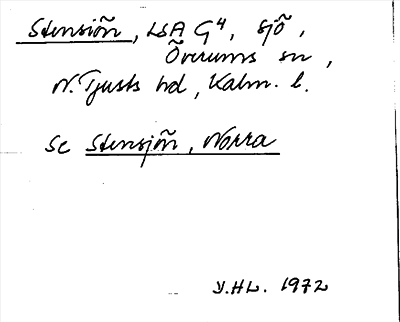 Stensiön, LSA G4, sjö,
Överums sn,
N. Tjusts hd, Kalm. l.
se Stensjön, Norra
Y.HL. 1972